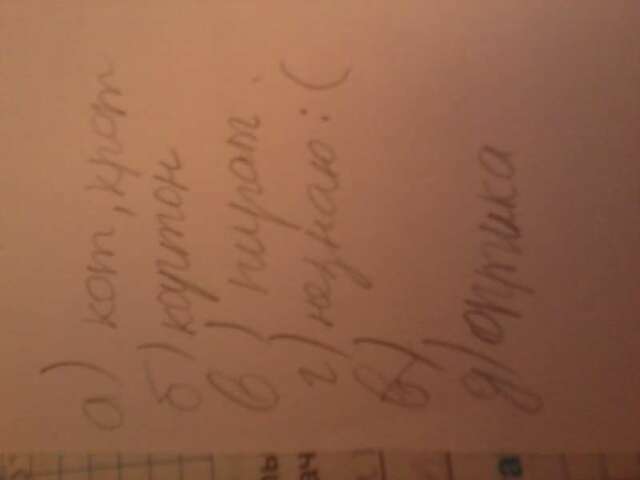 а) кот, крот
б) картон
в) пират.
г) незнаю :(
в)
д) оптика